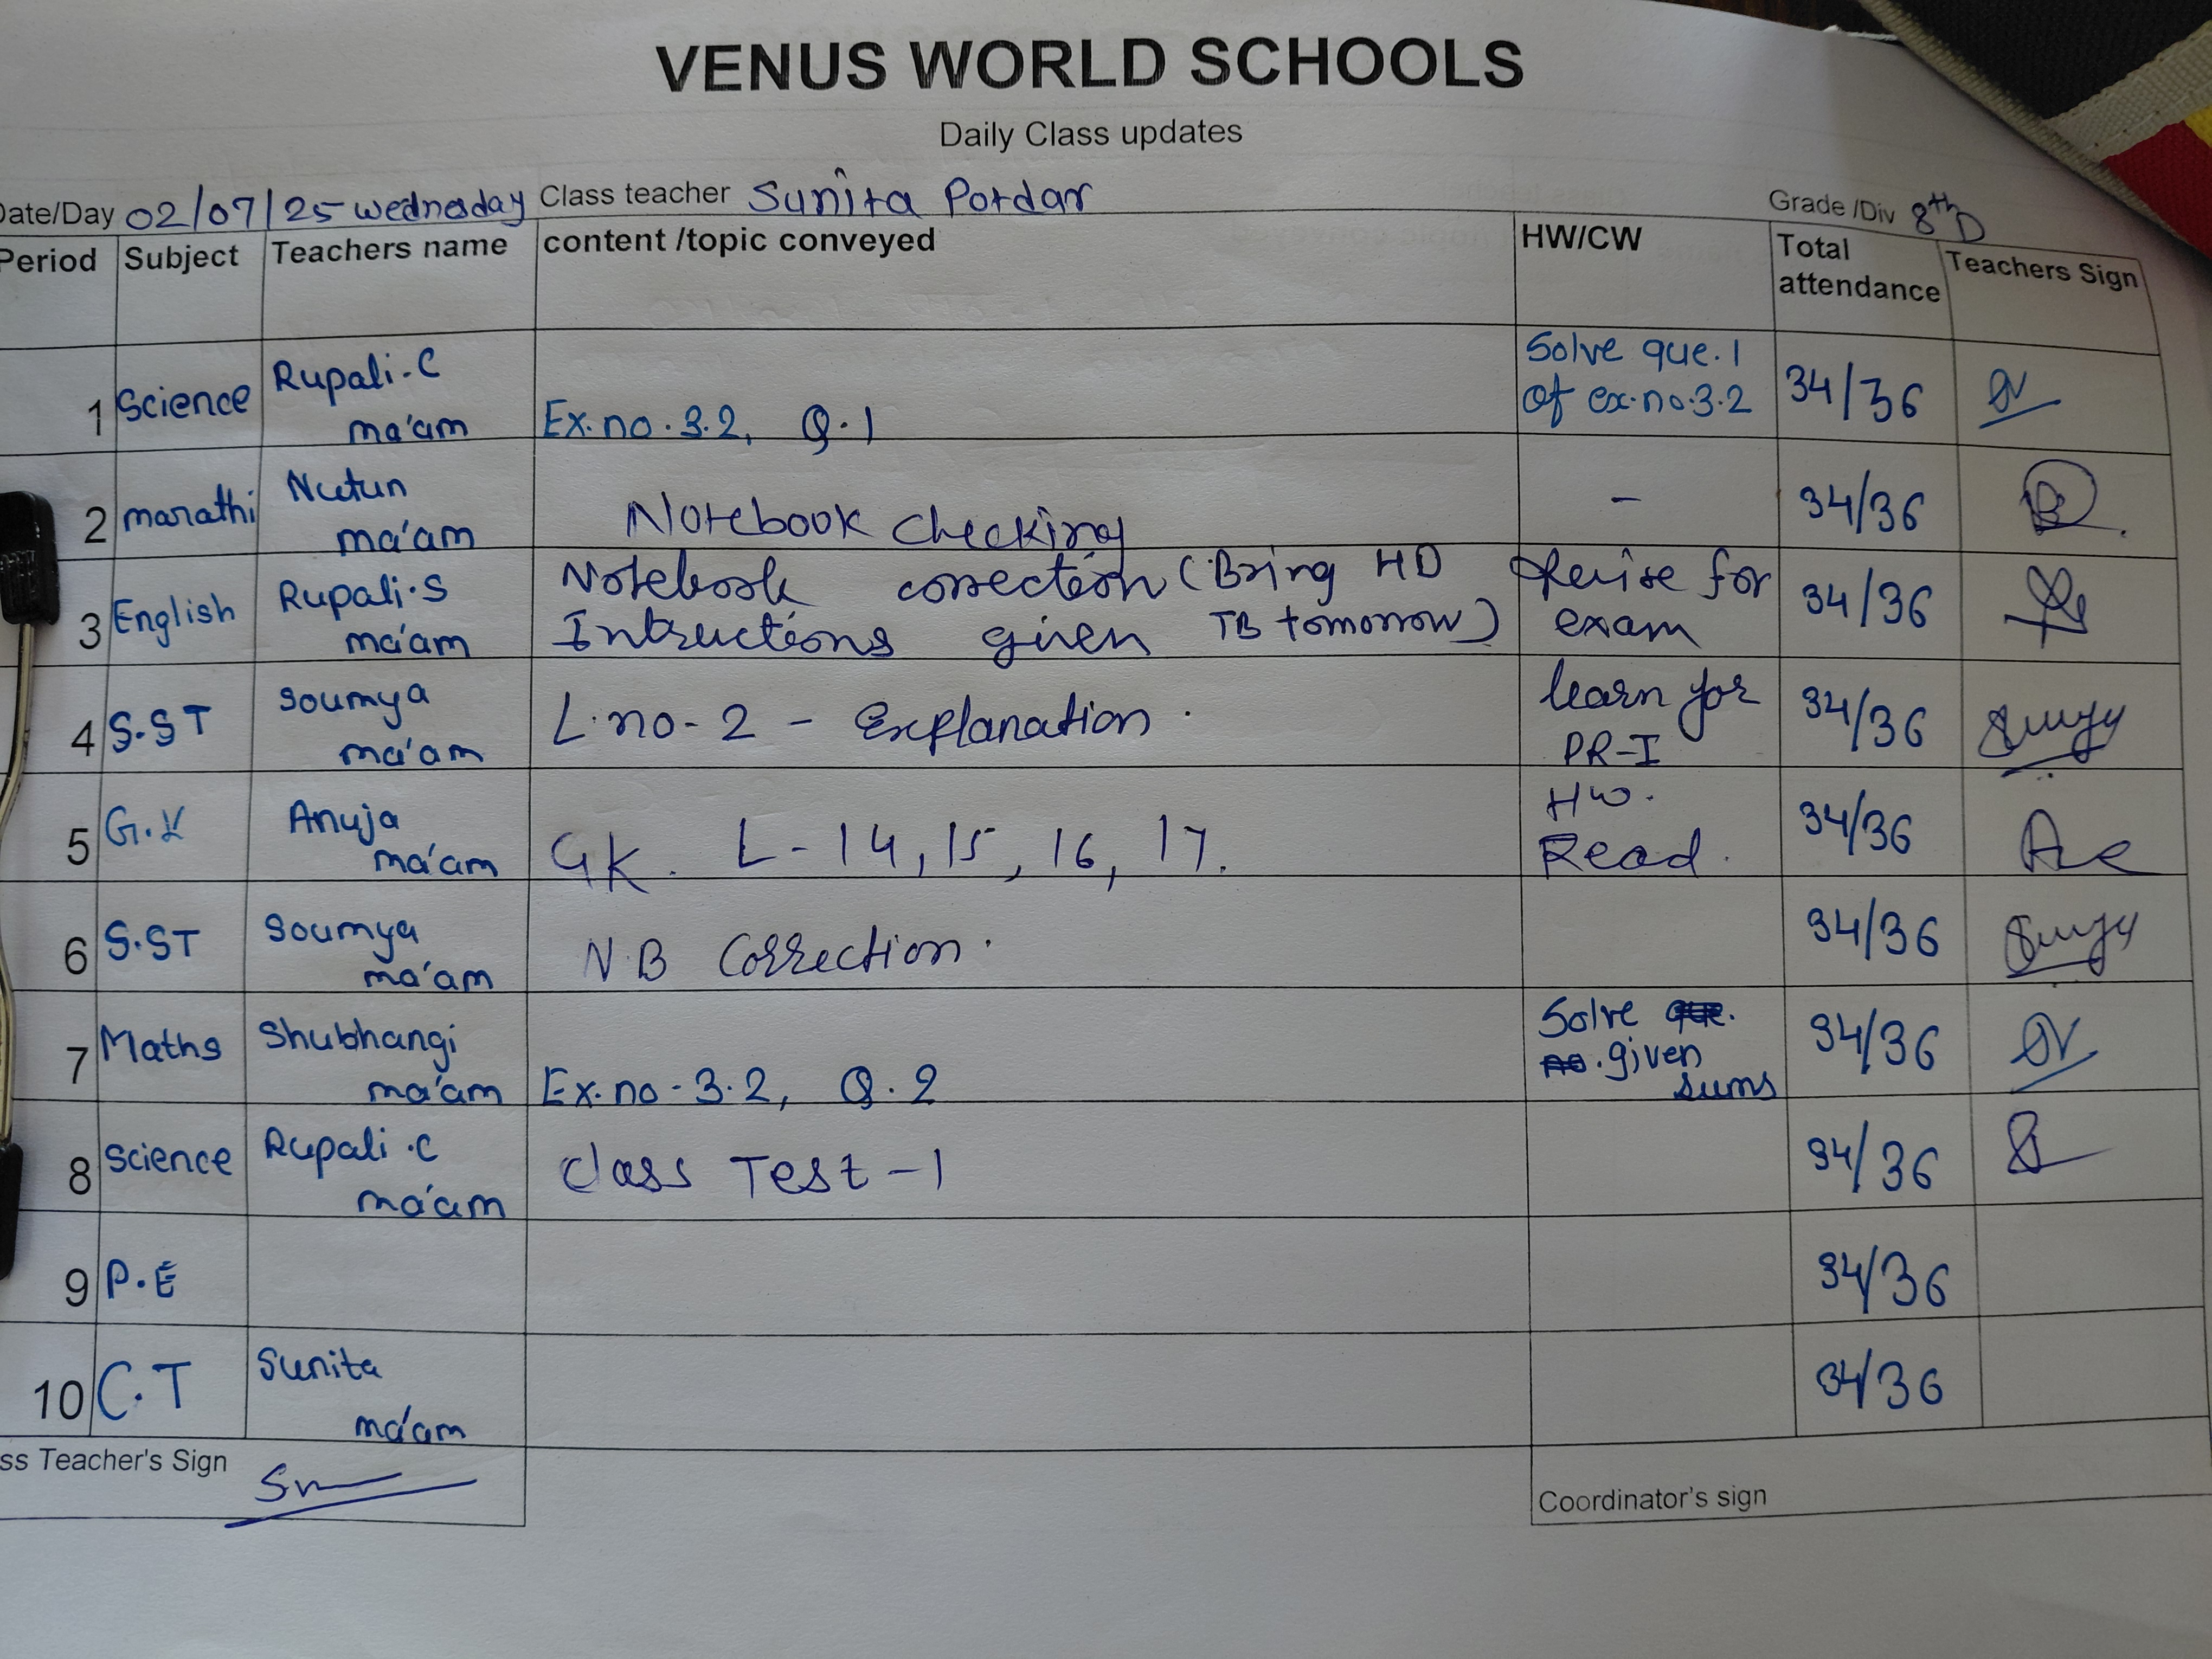 VENUS WORLD SCHOOLS
Daily Class updates
Date/Day 02/07/25 wednesday Class teacher Sunita Potdar Grade /Div 8th D
Period Subject Teachers name content /topic conveyed HW/CW Total attendance Teachers Sign
1 Science Rupali-C ma'am Ex.no.3.2, Q.1 Solve que.1 of ex.no.3.2 34/36
2 marathi Nutun ma'am Notebook checking - 34/36
3 English Rupali.S ma'am Notebook correction (Bring HD Revise for exam 34/36
Intructions given TB tomorrow)
4 S.ST Soumya ma'am L.no-2 - Explanation. learn for PR-I 34/36
5 G.K Anuja ma'am GK. L-14, 15, 16, 17. HW. Read. 34/36
6 S.ST Soumya ma'am N.B Correction. 34/36
7 Maths Shubhangi ma'am Ex.no-3.2, Q.2 Solve given sums 34/36
8 Science Rupali.C ma'am Class Test-1 34/36
9 P.E 34/36
10 C.T Sunita ma'am 34/36
ss Teacher's Sign
Coordinator's sign